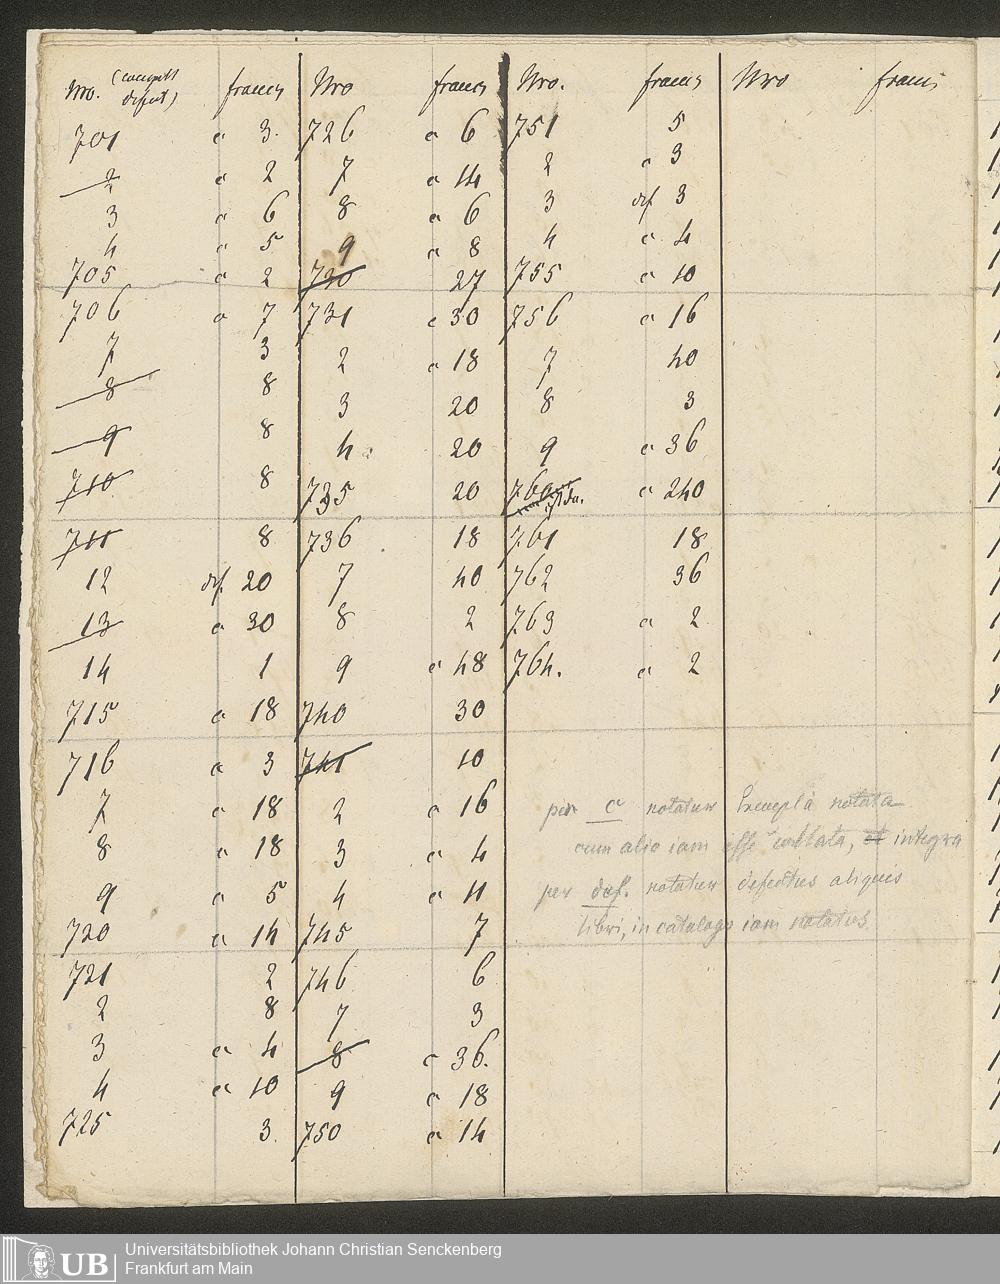 Nro. (compl defect) francs
701 c 3.
2 c 2
3 c 6
4 c 5
705 c 2
706 c 7
7 3
8 8
9 8
710 8
711 8
12 def. 20
13 c 30
14 1
715 c 18
716 c 3
7 c 18
8 c 18
9 c 5
720 c 14
721 2
2 8
3 c 4
4 c 10
725 3.
Nro francs
726 c 6
7 c 14
8 c 6
9 c 8
730 27
731 c 30
2 c 18
3 20
4 20
735 20
736 18
7 40
8 2
9 c 48
740 30
741 10
2 c 16
3 c 4
4 c 11
745 7
746 6
7 3
8 c 36.
9 c 18
750 c 14
Nro. francs
751 5
2 c 3
3 def 3
4 c 4
755 c 10
756 c 16
7 40
8 3
9 c 36
760 c 240
761 18
762 36
763 c 2
764. c 2
Nro francs
per c notatur Exempla notata
cum alio iam esse collata, et integra
per def. notatur defectus aliquis
libri, in catalogo iam notatus.
Universitätsbibliothek Johann Christian Senckenberg
Frankfurt am Main
UB